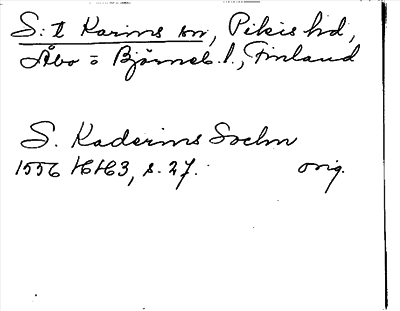 S:t Karins sn, Pikis hd,
Åbo o Björneb. l., Finland
S. Kaderins Sochn
1556 HH3, s. 27. orig.